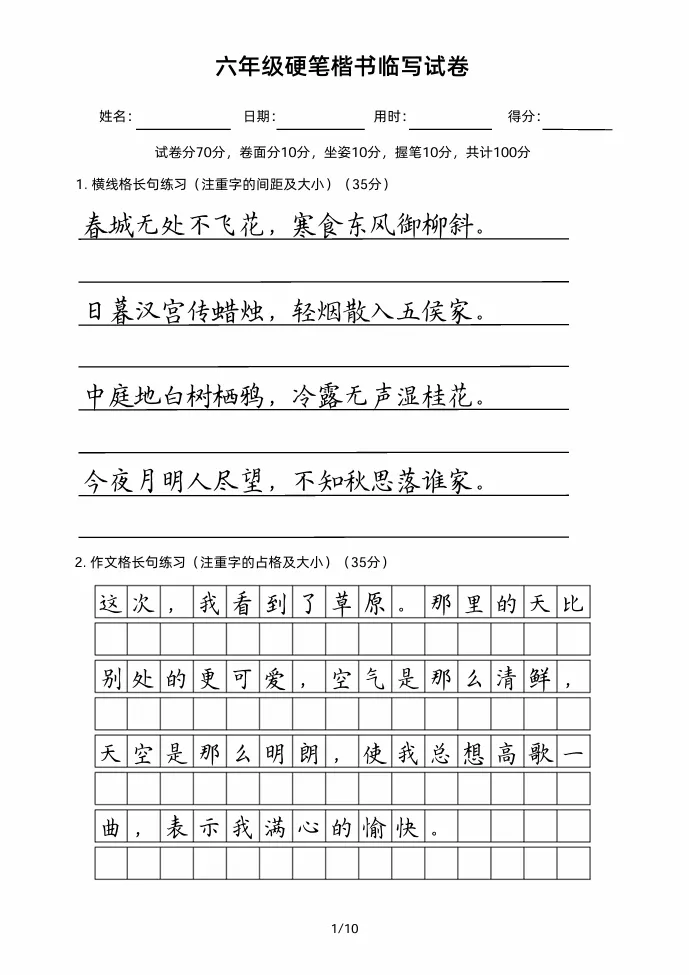 六年级硬笔楷书临写试卷
姓名： 日期： 用时： 得分：
试卷分70分，卷面分10分，坐姿10分，握笔10分，共计100分
1. 横线格长句练习（注重字的间距及大小）（35分）
春城无处不飞花，寒食东风御柳斜。
日暮汉宫传蜡烛，轻烟散入五侯家。
中庭地白树栖鸦，冷露无声湿桂花。
今夜月明人尽望，不知秋思落谁家。
2. 作文格长句练习（注重字的占格及大小）（35分）
这次，我看到了草原。那里的天比
别处的更可爱，空气是那么清鲜，
天空是那么明朗，使我总想高歌一
曲，表示我满心的愉快。
1/10